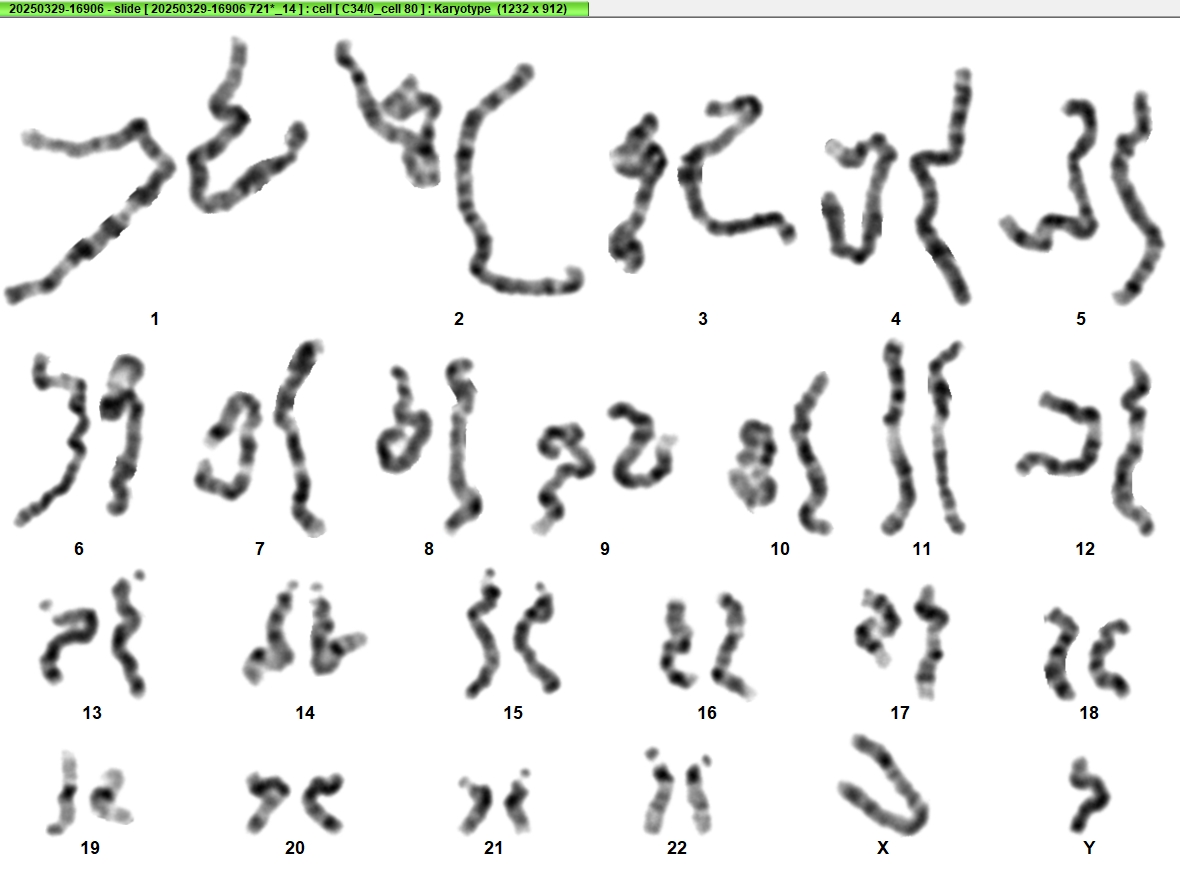 20250329-16906 - slide [ 20250329-16906 721*_14 ] : cell [ C34/0_cell 80 ] : Karyotype (1232 x 912)
1 2 3 4 5
6 7 8 9 10 11 12
13 14 15 16 17 18
19 20 21 22 X Y